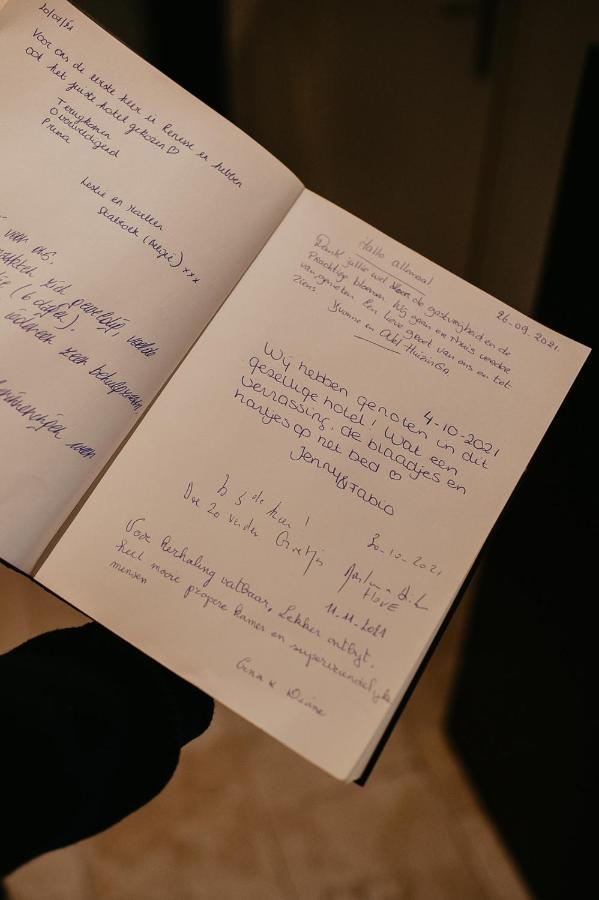 20/07/21
Voor ons de eerste keer in Renesse en hebben
ook het juiste hotel gekozen ♡
Terugkomen
Overweldigend
Prima
Leslie en
Stabroek (België) xxx
voor ons.
zich geweldig,
(6 dagen).
zeer behulpzaam,
Hallo allemaal
26-09-2021.
Dank jullie wel voor de gastvrijheid en de
Prachtige bloemen wij gaan er thuis verder
van genieten Een lieve groet van ons en tot
ziens
Yvonne en Abel Huizinga
4-10-2021
Wij hebben genoten in dit
gezellige hotel! Wat een
verrassing, de blaadjes en
hartjes op het bed ♡
Jenny & Fabio
20-10-2021
Zo verder Groetjes
11-11-2021
Voor herhaling vatbaar, Lekker ontbijt,
heel mooie propere kamer en supervriendelijke
mensen
Gina & Diane